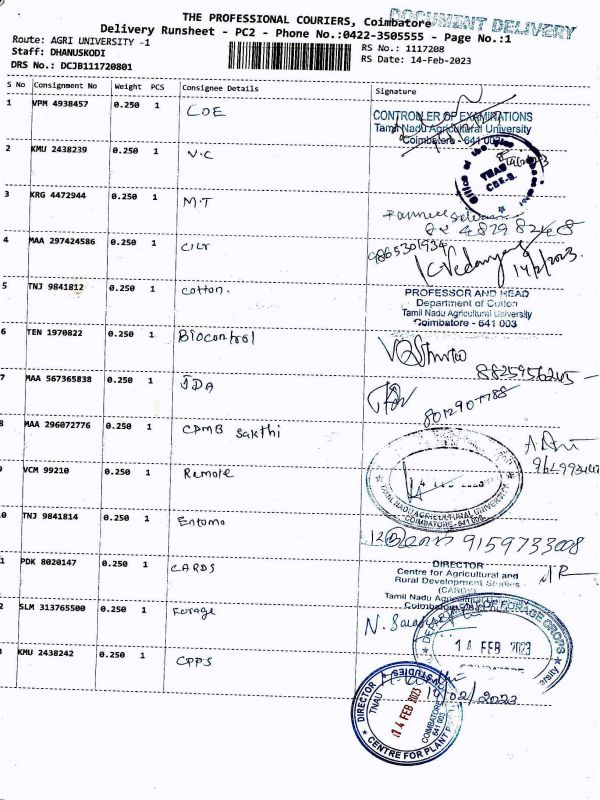 DOCUMENT DELIVERY
THE PROFESSIONAL COURIERS, Coimbatore
Delivery Runsheet - PC2 - Phone No.:0422-3505555 - Page No.:1
Route: AGRI UNIVERSITY -1
RS No.: 1117208
Staff: DHANUSKODI
RS Date: 14-Feb-2023
DRS No.: DCJB111720801
S No Consignment No Weight PCS Consignee Details Signature
1 VPM 4938457 0.250 1 COE
CONTROLLER OF EXAMINATIONS
Tamil Nadu Agricultural University
Coimbatore - 641 003
2 KMU 2438239 0.250 1 V.C
Office of the
TNAU
CBE-3.
3 KRG 4472944 0.250 1 M.T
4 MAA 297424586 0.250 1
9865301934
14/2/2023
5 TNJ 9841812 0.250 1 cotton.
PROFESSOR AND HEAD
Department of Cotton
Tamil Nadu Agricultural University
Coimbatore - 641 003
6 TEN 1970822 0.250 1 Biocontrol
8825956245
7 MAA 567365838 0.250 1 JDA
8 MAA 296072776 0.250 1 CPMB Sakthi
TAMIL NADU AGRICULTURAL UNIVERSITY
COIMBATORE - 641 003
9 VCM 99210 0.250 1 Remote
0 TNJ 9841814 0.250 1 Entomo
9159733008
1 PDK 8020147 0.250 1 CARDS
DIRECTOR
Centre for Agricultural and
Rural Development Studies
(CARDS)
Tamil Nadu Agricultural
Coimbatore
2 SLM 313765500 0.250 1 Forage
DEPARTMENT OF FORAGE CROPS
14 FEB 2023
3 KMU 2438242 0.250 1 CPPS
14/02/2023
DIRECTOR
TNAU
14 FEB 2023
COIMBATORE
641 003
CENTRE FOR PLANT